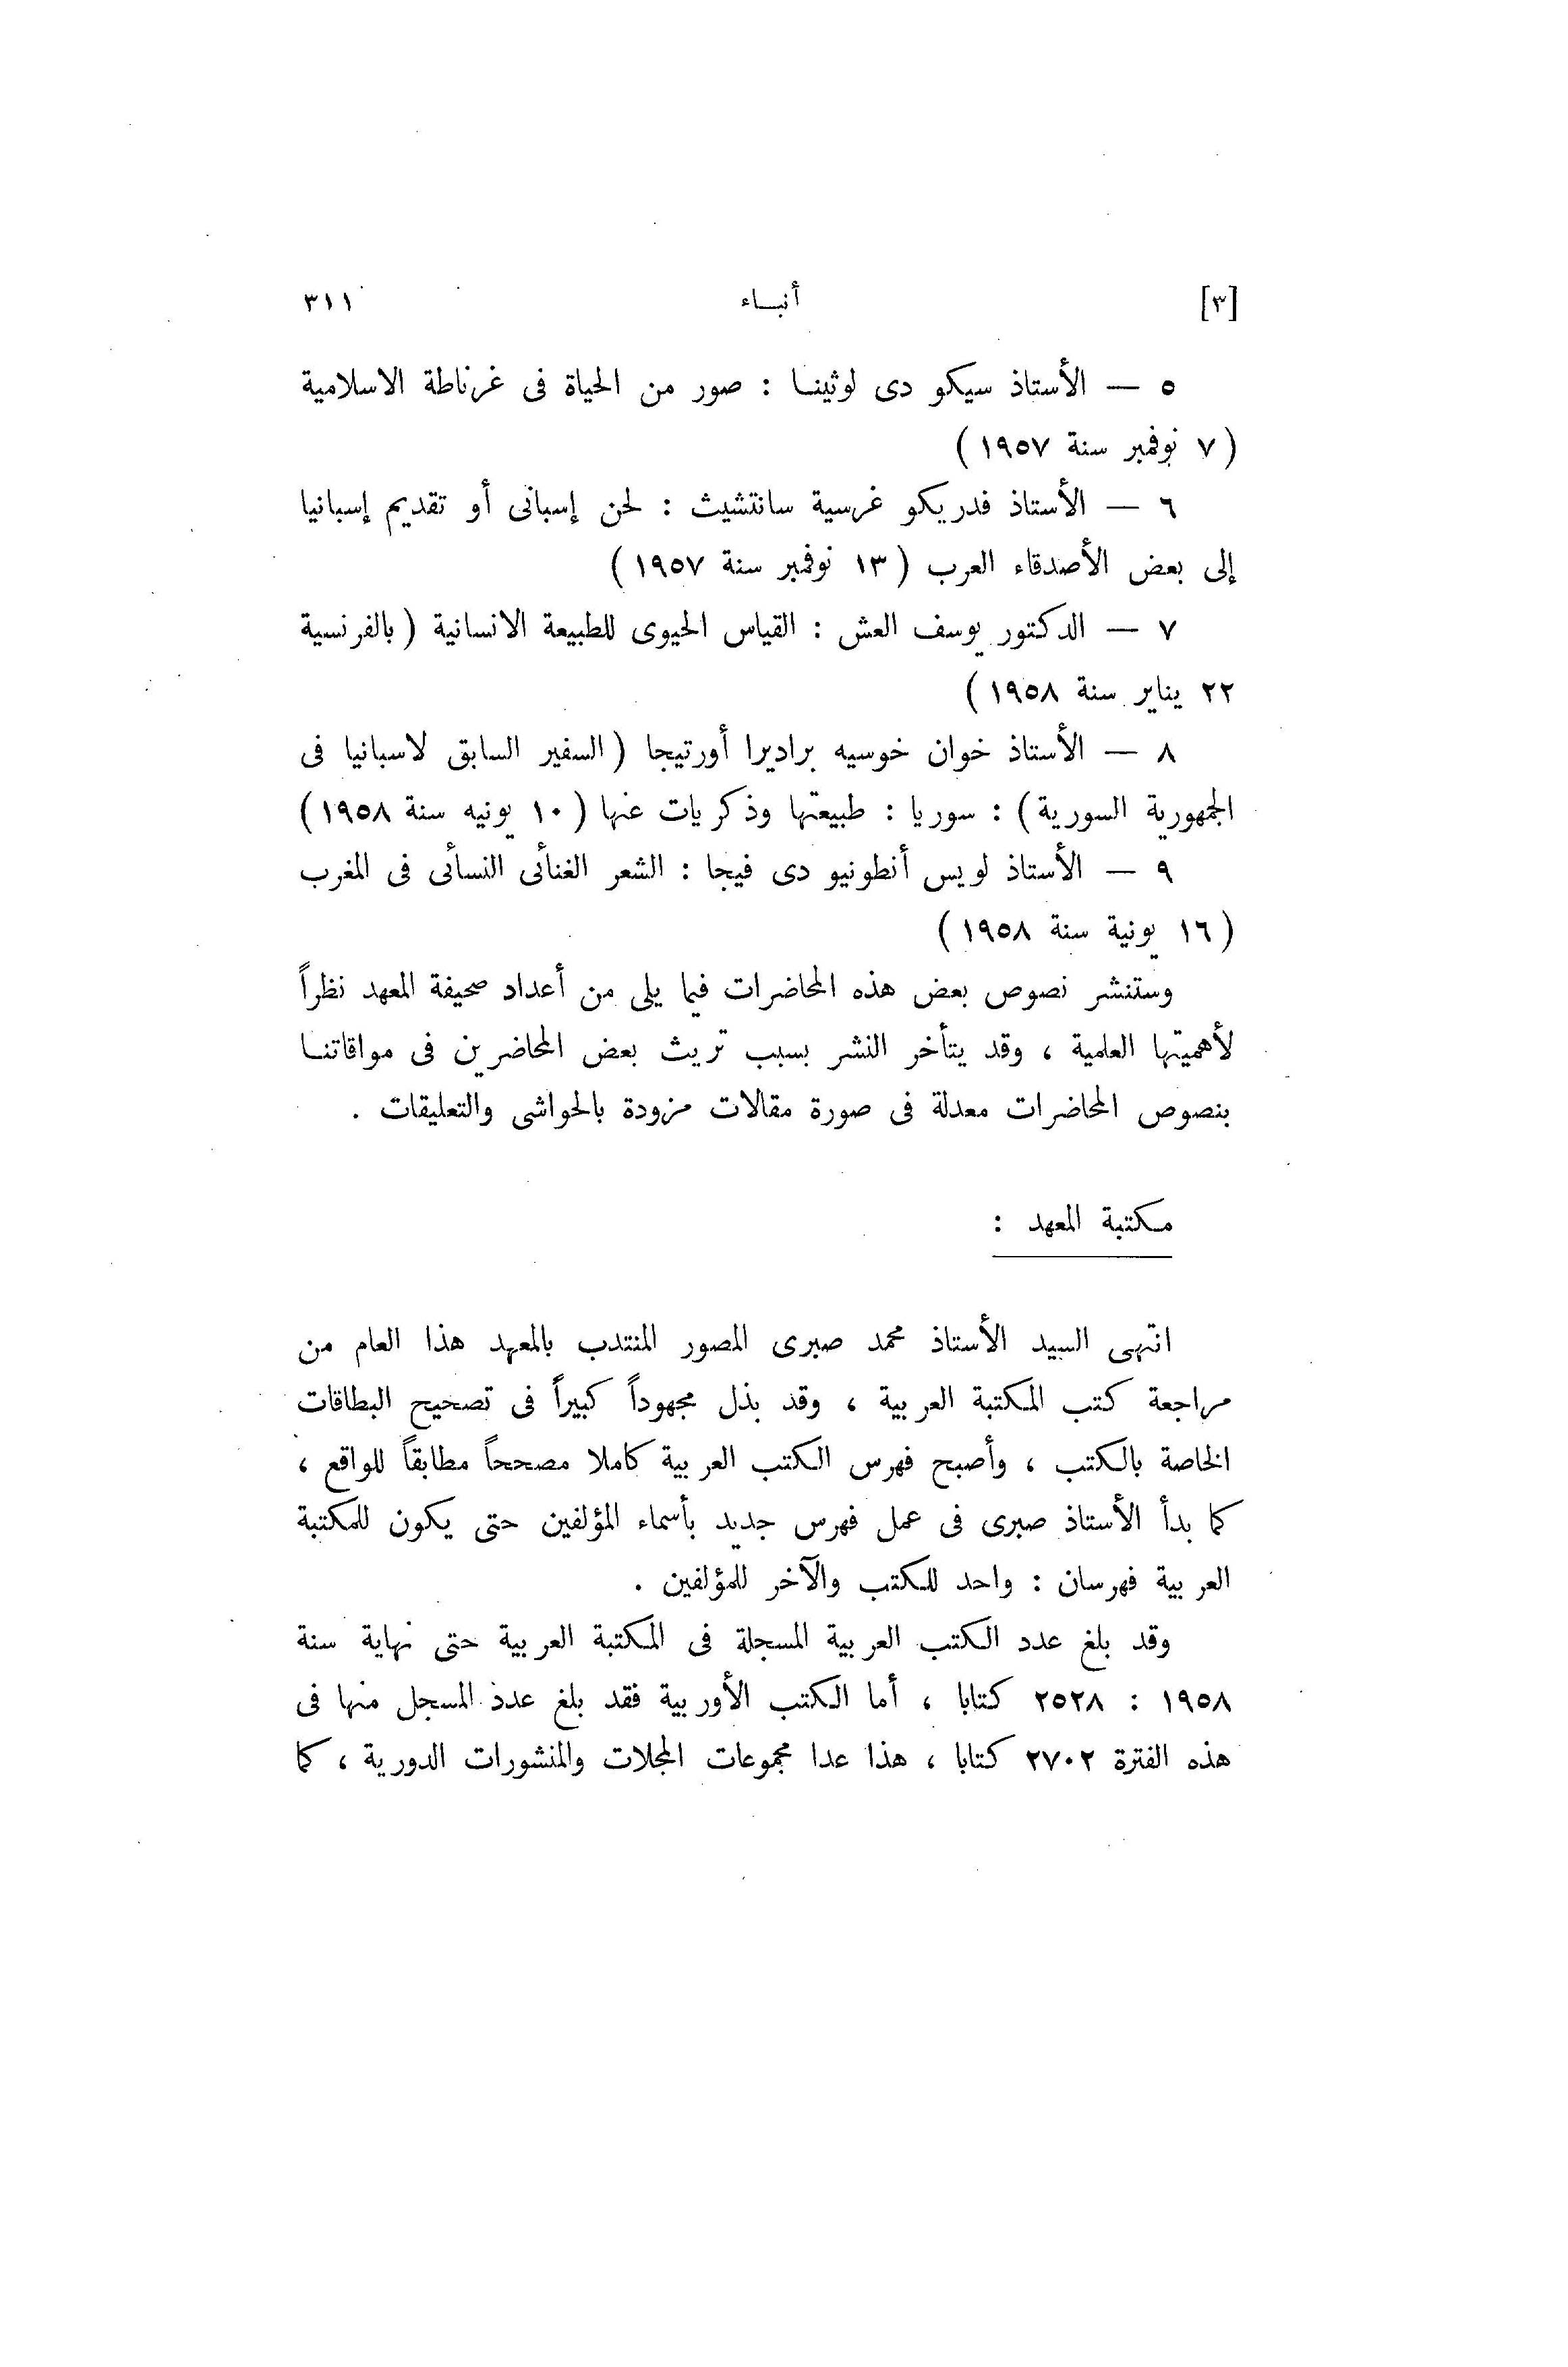 [٣] أنباء ٣١١
٥ — الأستاذ سيكو دى لوثينا : صور من الحياة فى غرناطة الاسلامية
( ٧ نوفمبر سنة ١٩٥٧ )
٦ — الأستاذ فدريكو غرسية سانتشيث : لحن إسبانى أو تقديم إسبانيا
إلى بعض الأصدقاء العرب ( ١٣ نوفمبر سنة ١٩٥٧ )
٧ — الدكتور يوسف العش : القياس الحيوى للطبيعة الانسانية ( بالفرنسية
٢٢ يناير سنة ١٩٥٨ )
٨ — الأستاذ خوان خوسيه براديرا أورتيجا ( السفير السابق لاسبانيا فى
الجمهورية السورية ) : سوريا : طبيعتها وذكريات عنها ( ١٠ يونيه سنة ١٩٥٨ )
٩ — الأستاذ لويس أنطونيو دى فيجا : الشعر الغنائى النسائى فى المغرب
( ١٦ يونية سنة ١٩٥٨ )
وستنشر نصوص بعض هذه المحاضرات فيما يلى من أعداد صحيفة المعهد نظراً
لأهميتها العلمية ، وقد يتأخر النشر بسبب تريث بعض المحاضرين فى موافاتنا
بنصوص المحاضرات معدلة فى صورة مقالات مزودة بالحواشى والتعليقات .
مكتبة المعهد :
انتهى السيد الأستاذ محمد صبرى المصور المنتدب بالمعهد هذا العام من
مراجعة كتب المكتبة العربية ، وقد بذل مجهوداً كبيراً فى تصحيح البطاقات
الخاصة بالكتب ، وأصبح فهرس الكتب العربية كاملا مصححاً مطابقاً للواقع ،
كما بدأ الأستاذ صبرى فى عمل فهرس جديد بأسماء المؤلفين حتى يكون للمكتبة
العربية فهرسان : واحد للكتب والآخر للمؤلفين .
وقد بلغ عدد الكتب العربية المسجلة فى المكتبة العربية حتى نهاية سنة
١٩٥٨ : ٢٥٢٨ كتابا ، أما الكتب الأوربية فقد بلغ عدد المسجل منها فى
هذه الفترة ٢٧٠٢ كتابا ، هذا عدا مجموعات المجلات والمنشورات الدورية ، كما